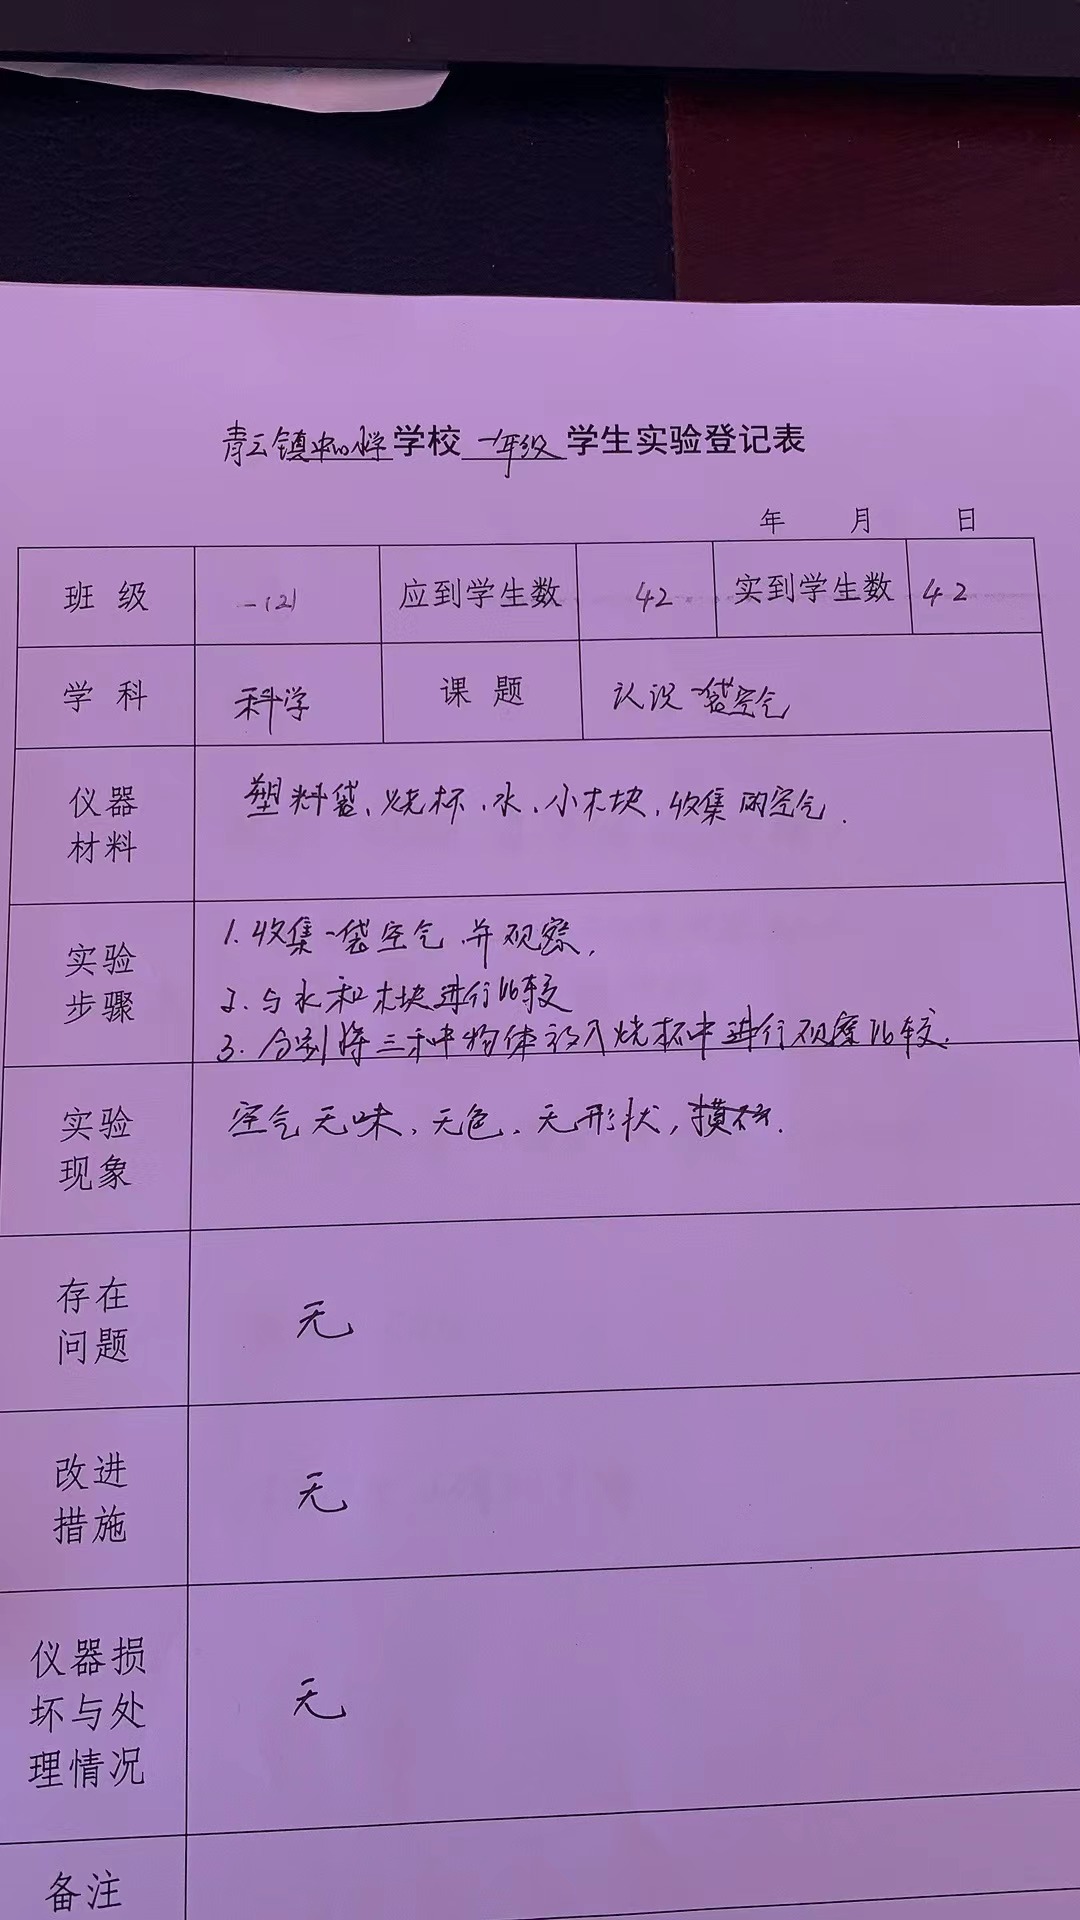 青云镇中心小学学校一年级学生实验登记表
年 月 日
班级 一(2) 应到学生数 42 实到学生数 42
学科 科学 课题 认识一袋空气
仪器材料 塑料袋、烧杯、水、小木块、收集的空气.
实验步骤 1.收集一袋空气并观察,
2.与水和木块进行比较
3.分别将三种物体放入烧杯中进行观察比较.
实验现象 空气无味、无色、无形状,
存在问题 无
改进措施 无
仪器损坏与处理情况 无
备注